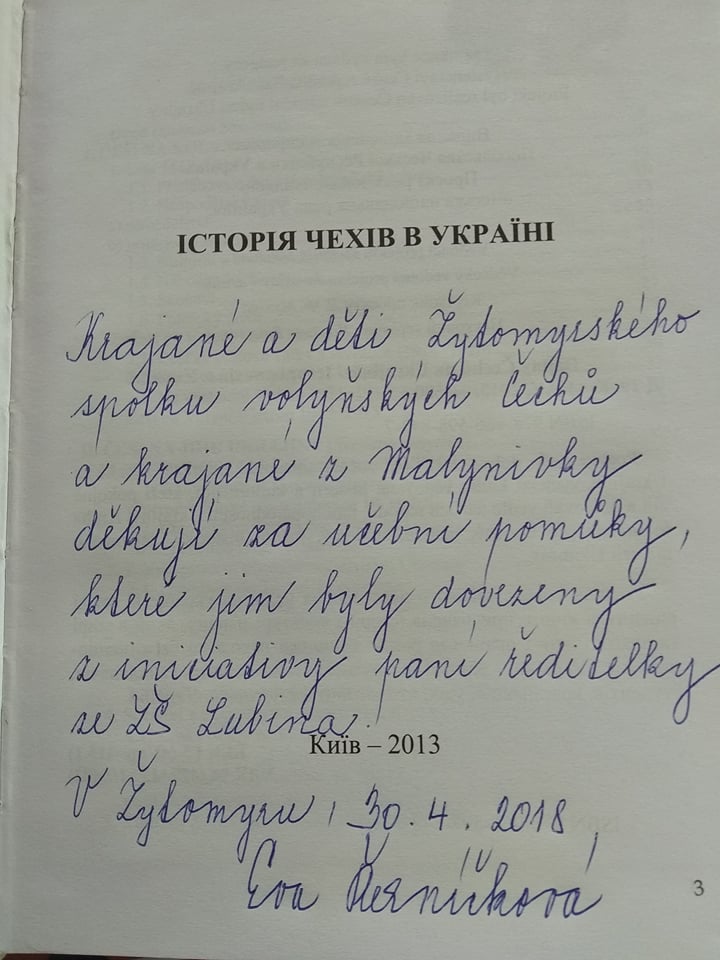 ІСТОРІЯ ЧЕХІВ В УКРАЇНІ
Krajané a děti Žytomyrského
spolku volyňských Čechů
a krajané z Malynivky
děkují za učební pomůky,
které jim byly dovezeny
z iniciativy paní ředitelky
ze ZŠ Lubina.
Київ – 2013
V Žytomyru, 30. 4. 2018
Eva Řezníčková
3